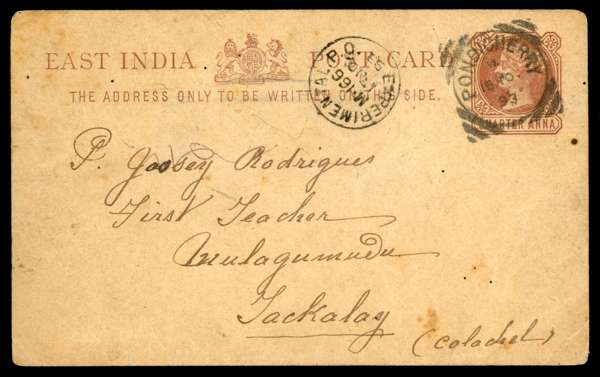 EAST INDIA POST CARD
THE ADDRESS ONLY TO BE WRITTEN ON THIS SIDE.
EXPERIMENTAL P.O.
PONDICHERRY
93
QUARTER ANNA
P. Joosey Rodrigues
First Teacher
Mulagumudu
Tackalay
(Colachel)